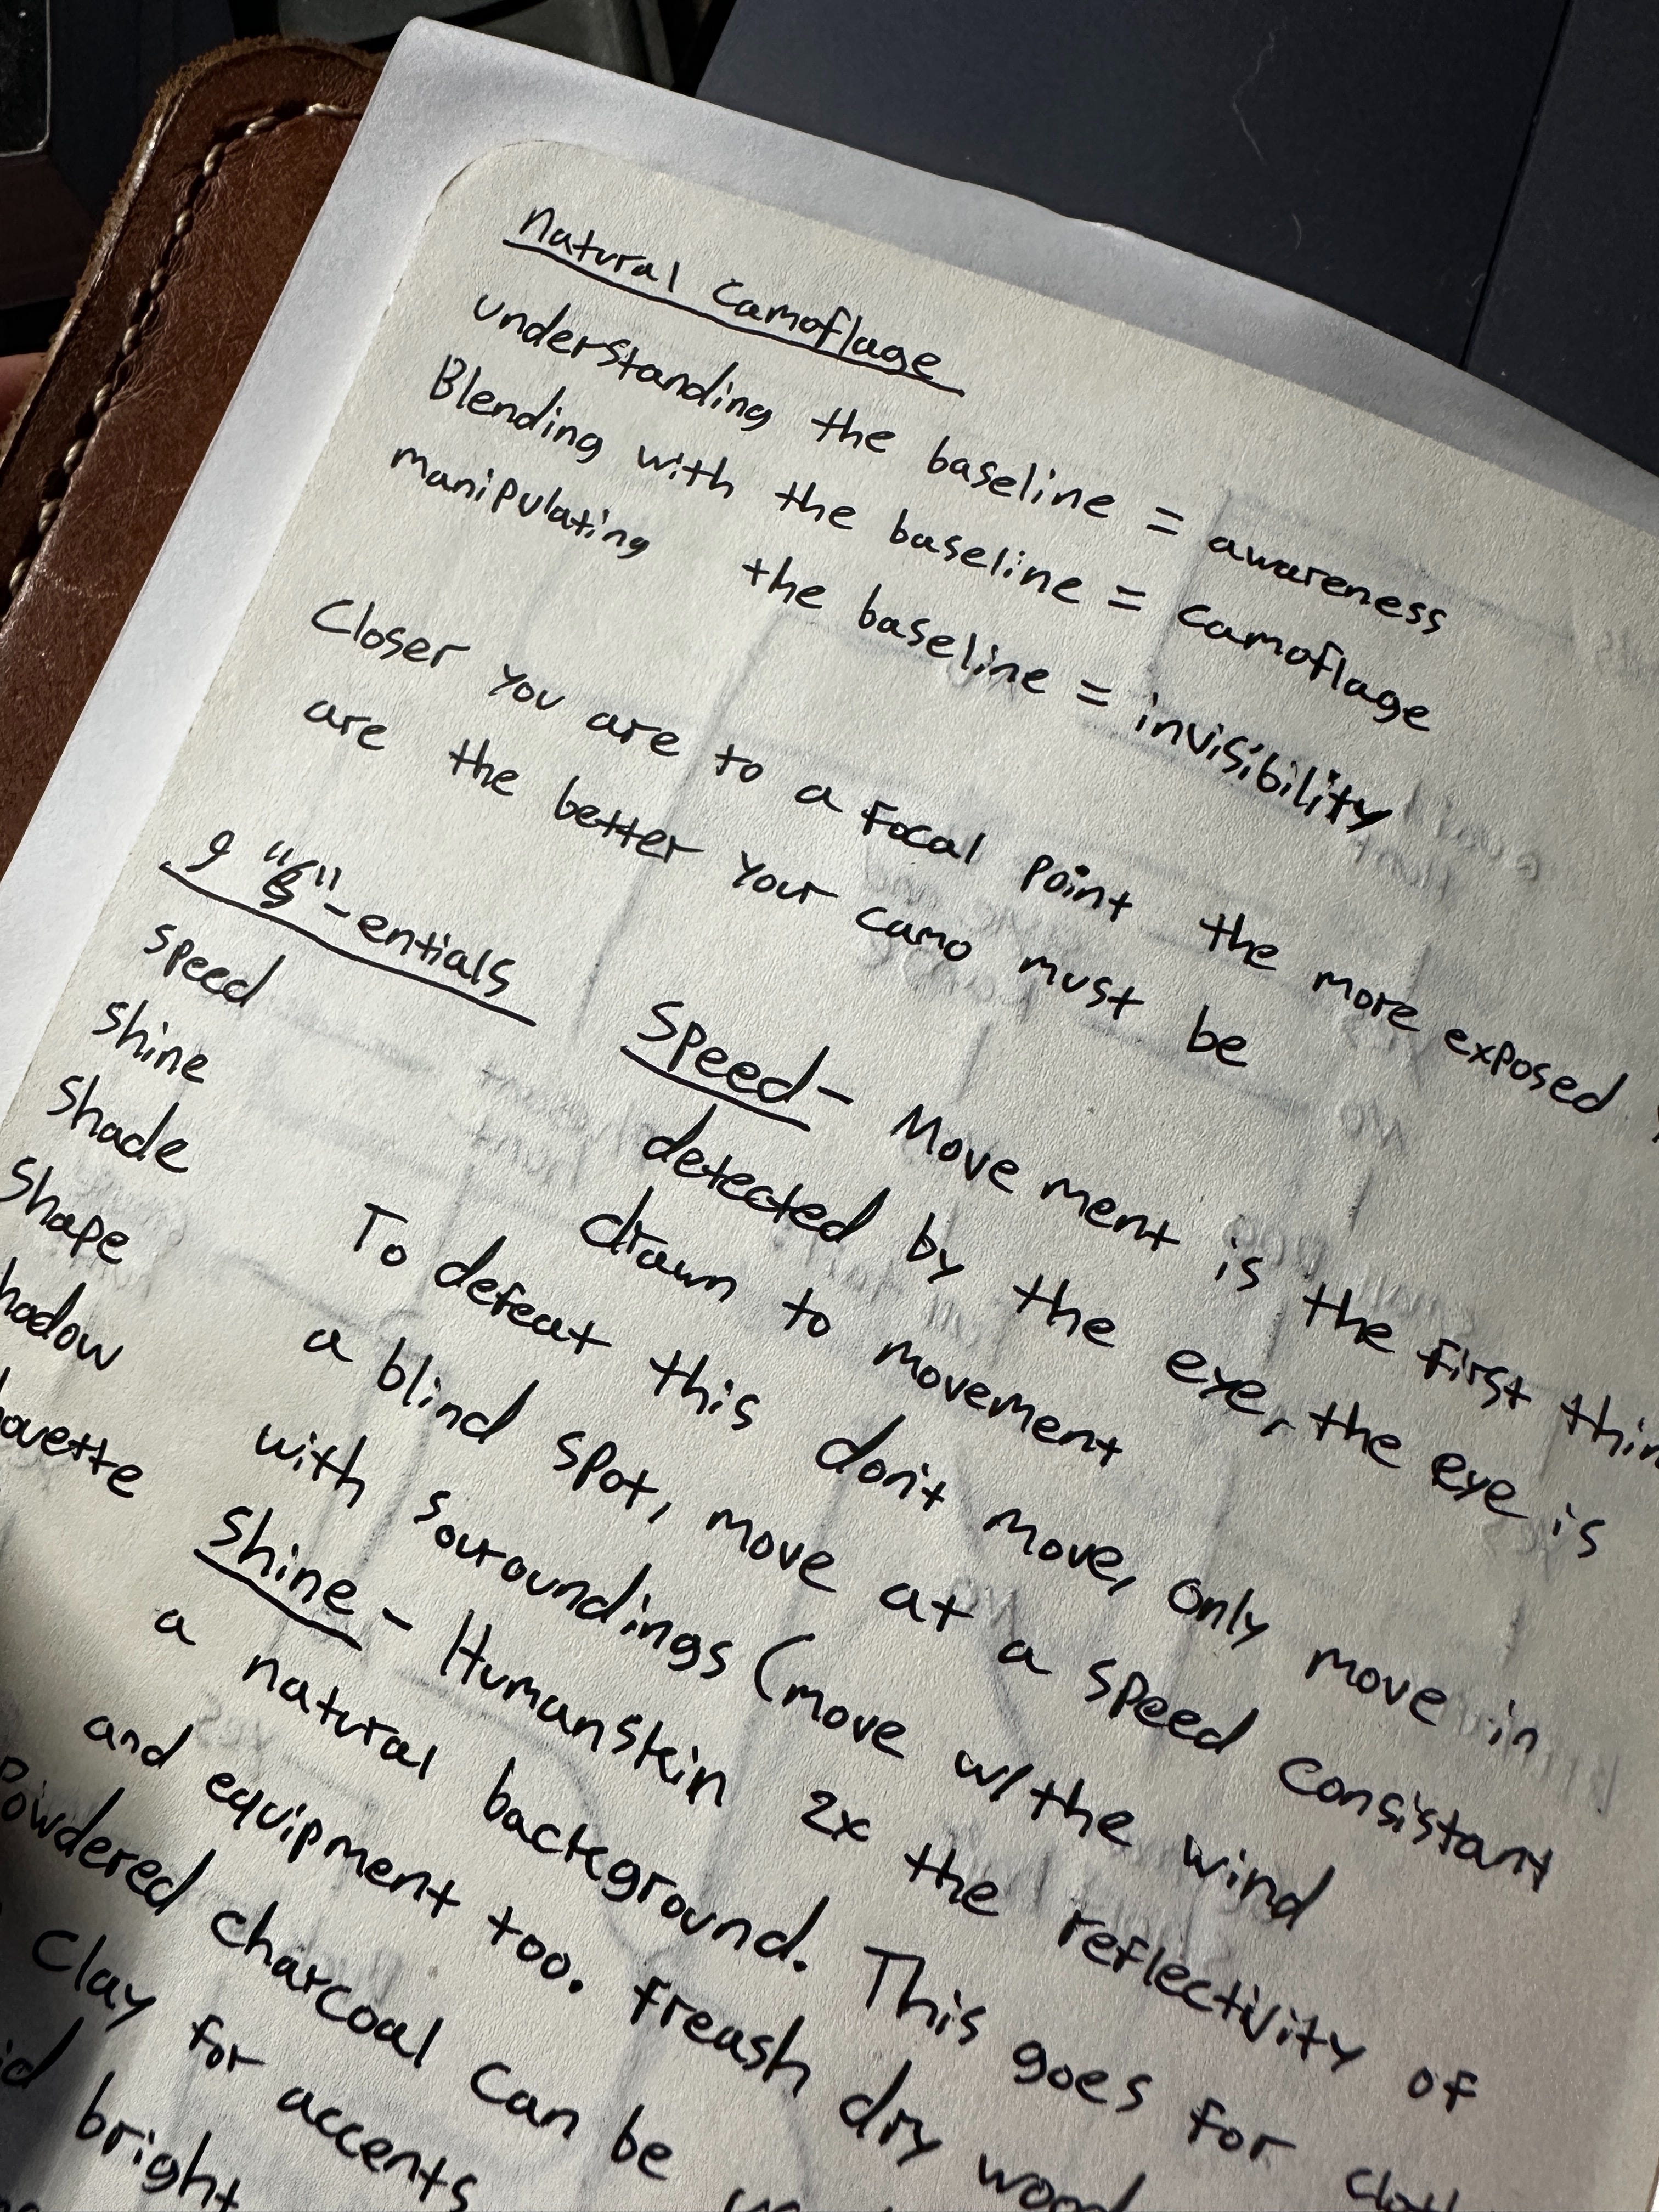 Natural Camoflage
understanding the baseline = awareness
Blending with the baseline = camoflage
manipulating the baseline = invisibility
Closer you are to a focal point the more exposed
are the better your camo must be
9 "S"-entials
speed
shine
shade
shape
hadow
ouette
Speed- Move ment is the first thin
detected by the eye, the eye is
drawn to movement
To defeat this don't move, only move in
a blind spot, move at a speed consistant
with souroundings (move w/the wind
Shine - Human skin 2x the reflectivity of
a natural background. This goes for cloth
and equipment too. freash dry wood
Powdered charcoal can be
Clay for accents
id bright